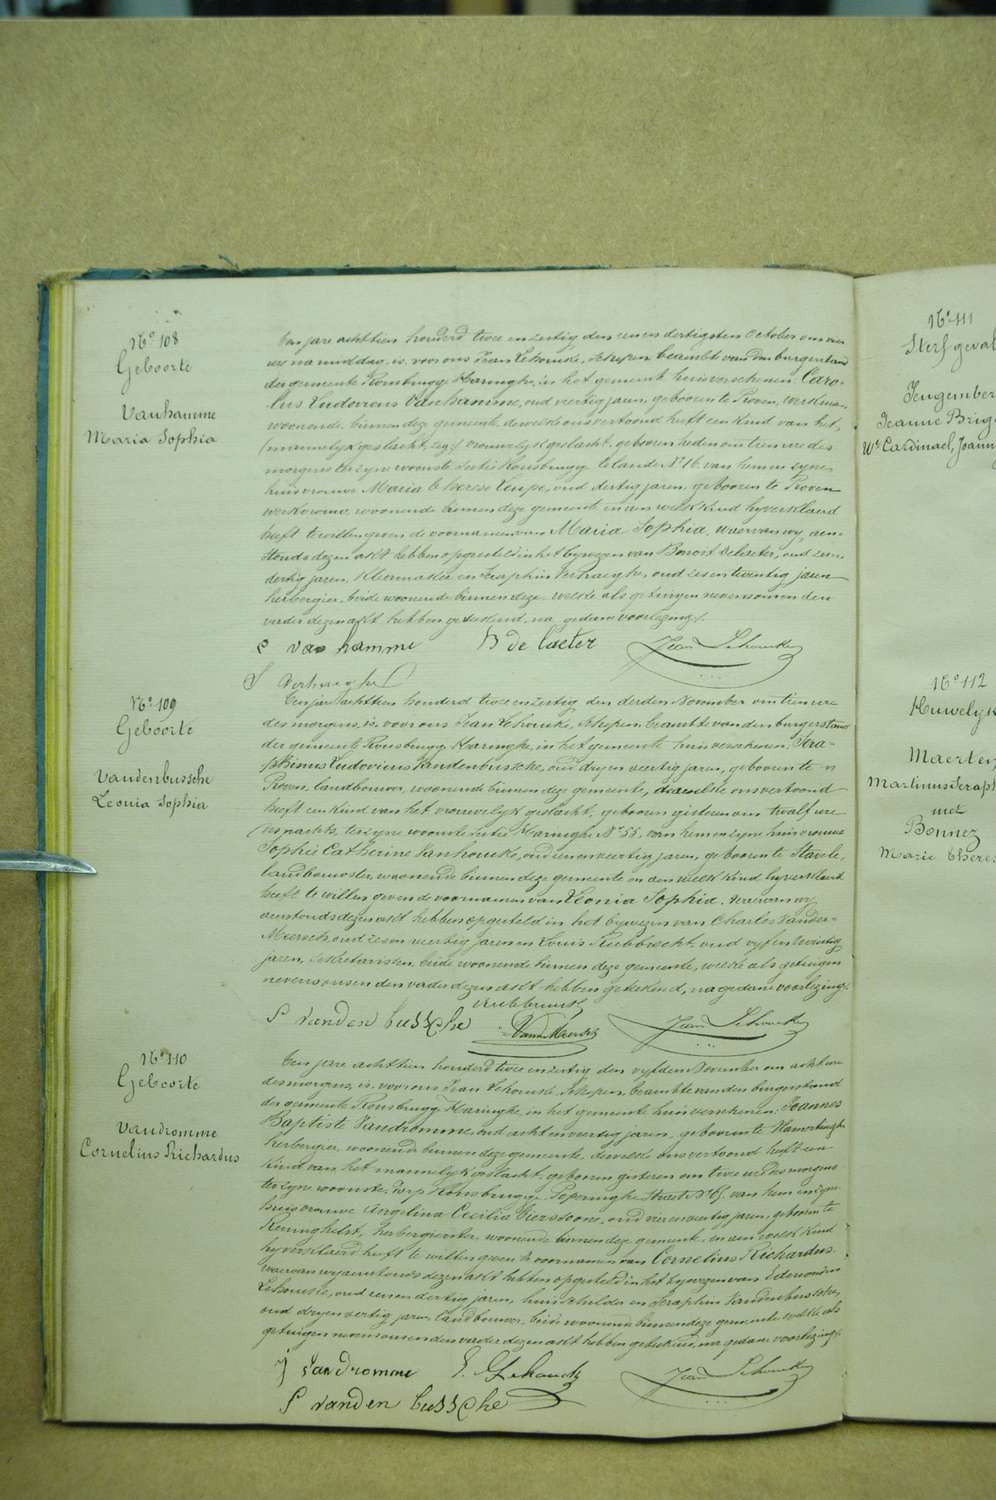 N° 108
Geboorte
Vanhamme
Maria Sophia
Ten jare achttien honderd twee en zestig den eenen dertigsten October om vier
ure na middag, is voor ons Jean Lehoucke, Schepen beambte van den burgerstand
der gemeente Rousbrugge Haringhe, in het gemeente huis verschenen: Caro-
lus Ludovicus Vanhamme, oud veertig jaren, geboren te Proven, werkman
woonende binnen deze gemeente, dewelke ons vertoond heeft een kind van het,
vrouwelijk geslacht, geboren heden om tien ure des
morgens ter zyne woonste Sectie Rousbrugge N° 16. van hem en zyne
huisvrouw Maria Therese oud dertig jaren, geboren te Proven
werkvrouw, woonende binnen deze gemeente en aan welk kind hy verklaard
heeft te willen geven de voornamen van Maria Sophia, waervan wy aen-
stonds dezen akt hebben opgesteld in het bywezen van Benoit Delaeter, oud zeven
dertig jaren, kleermaker en Seraphin Verhaeghe, oud zes en twentig jaren
herbergier, beide woonende binnen deze, welke als getuigen nevens ons en den
vader dezen akt hebben geteekend, na gedane voorlezing.
C van hamme B de laeter Jean Lehoucke
S Verhaeghe
N° 109
Geboorte
Vandenbussche
Leonia Sophia
Ten jare achttien honderd twee en zestig den derden November om tien ure
des morgens, is voor ons Jean Lehoucke, Schepen beambte van den burgerstand
der gemeente Rousbrugge Haringhe, in het gemeente huis verschenen, Sera-
phinus Ludovicus Vandenbussche, oud dry en veertig jaren, geboren te
Proven, landbouwer, woonende binnen deze gemeente, dewelke ons vertoond
heeft een kind van het vrouwelyk geslacht, geboren gisteren om twalf ure
's nachts, ter zyne woonste Sectie Haringhe N° 55. van hem en zyne huisvrouwe
Sophie Catherine Vanhoucke, oud een en veertig jaren, geboren te Stavele,
landbouwster, woonende binnen deze gemeente en aan welk kind hy verklaert
heeft te willen geven de voornamen van Leonia Sophia. waervan wy
aenstonds dezen akt hebben opgesteld in het bywezen van Charles Vander-
Meersch oud zes en veertig jaren en Louis oud vyf en twentig
jaren, secretarissen, beide woonende binnen deze gemeente, welke als getuigen
nevens ons en den vader dezen akt hebben geteekend, na gedane voorlezing.
S vanden bussche VanderMeersch Jean Lehoucke
N° 110
Geboorte
Vandromme
Cornelius Richardus
Ten jare achttien honderd twee en zestig den vyfden November om acht ure
des morgens, is voor ons Jean Lehoucke Schepen beambte van den burgerstand
der gemeente Rousbrugge Haringhe, in het gemeente huis verschenen, Joannes
Baptiste Vandromme, oud acht en veertig jaren, geboren te
herbergier, woonende binnen deze gemeente, dewelke ons vertoond heeft een
kind van het mannelyk geslacht, geboren gisteren om twee ure des morgens
ter zyne woonste, dorp Rousbrugge Poperinghe Straet N° van hem en zyne
huisvrouwe Angelina Cecilia oud vier en veertig jaren, geboren te
Reninghelst, herbergierster, woonende binnen deze gemeente, en aan welk kind
hy verklaerd heeft te willen geven de voornamen van Cornelius Richardus
waervan wy aenstonds dezen akt hebben opgesteld in het bywezen van Edemondus
Lehoucke, oud zeven en dertig jaren, huisschilder en Seraphin Vandenbussche,
oud dry en veertig jaren, landbouwer, beide woonende binnen deze gemeente welke als
getuigen nevens ons en den vader dezen akt hebben geteekend, na gedane voorlezing.
j Vandromme E. Lehoucke Jean Lehoucke
S vanden bussche
N° 111
Sterfgeval
Jeugember
Jeanne Brig
We Cardinael, Joann
N° 112
Huwelijk
Maerten
Martinus Seraph
met
Bonnez
Marie Theres